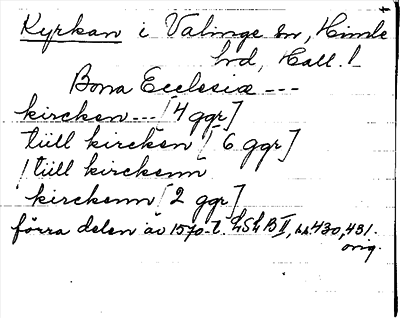 Kyrkan i Valinge sn, Himle
hd, Hall. l.
Bona Ecclesiæ ---
kircken --- [4 ggr]
tiill kircken [6 ggr]
tiill kirckenn
kirckenn [2 ggr]
förra delen av 1570-t. hSh B II, bl 430, 431.
orig.